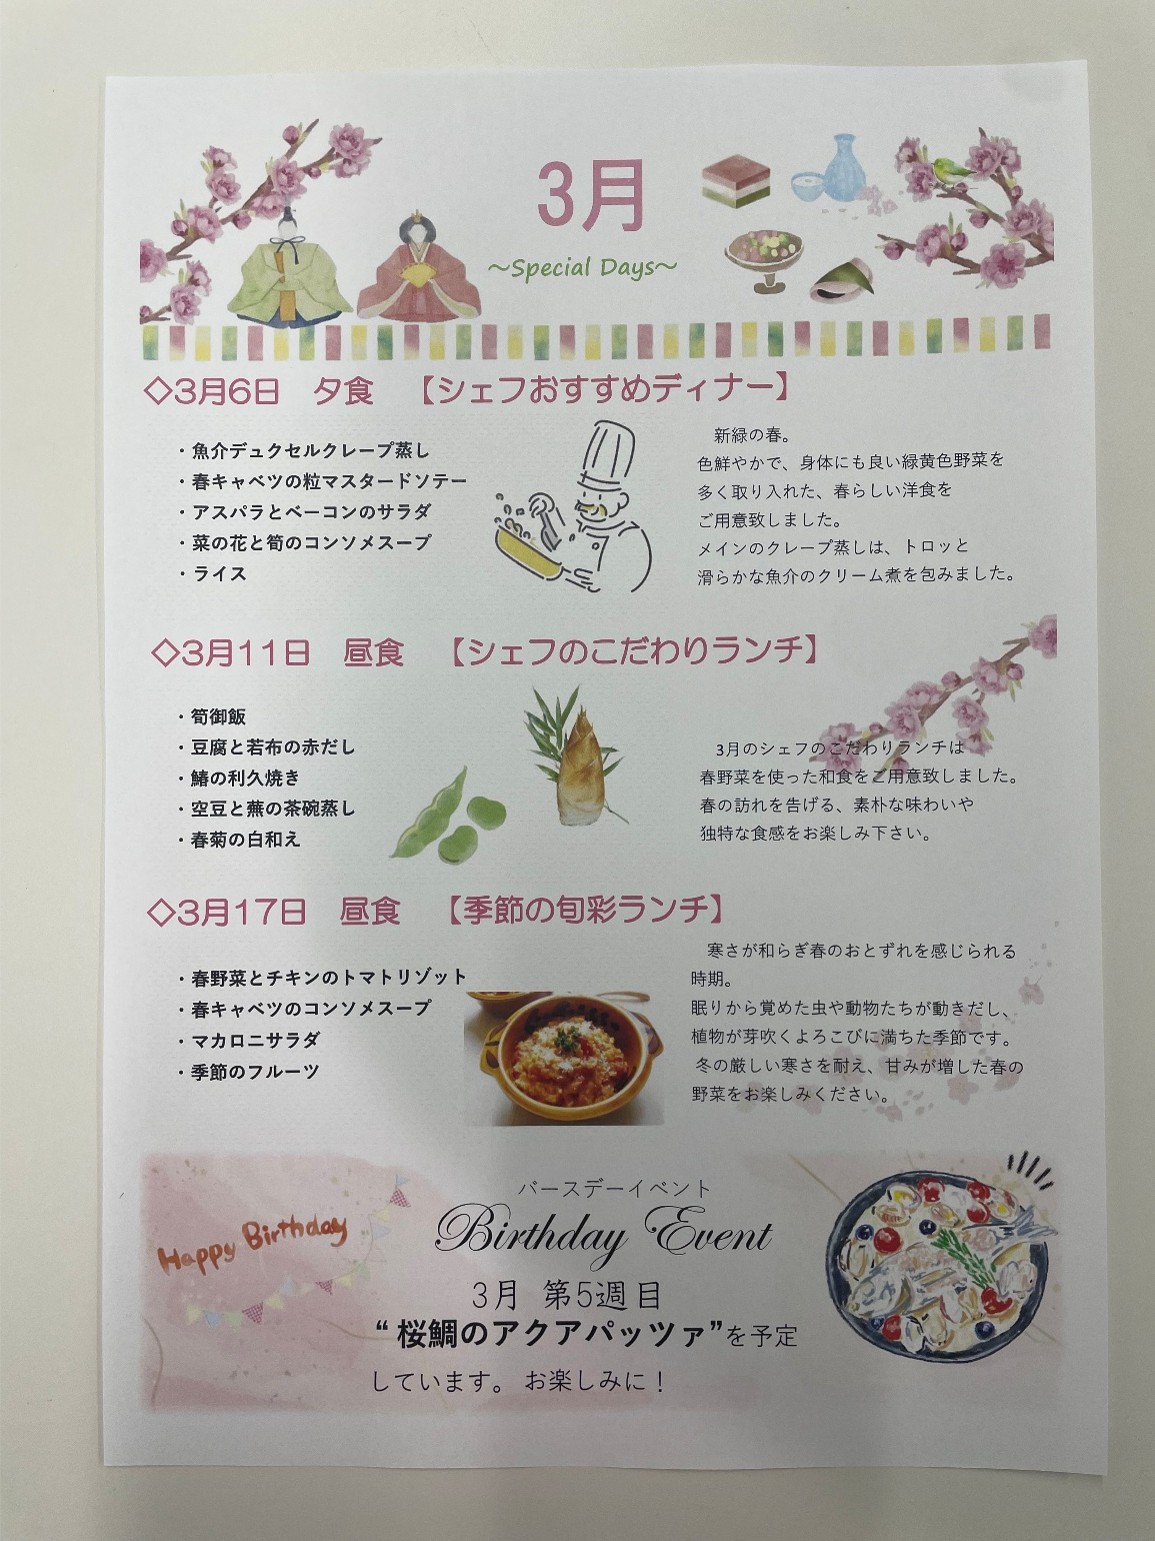 3月
～Special Days～
◇3月6日　夕食　【シェフおすすめディナー】
・魚介デュクセルクレープ蒸し
・春キャベツの粒マスタードソテー
・アスパラとベーコンのサラダ
・菜の花と筍のコンソメスープ
・ライス
新緑の春。
色鮮やかで、身体にも良い緑黄色野菜を
多く取り入れた、春らしい洋食を
ご用意致しました。
メインのクレープ蒸しは、トロッと
滑らかな魚介のクリーム煮を包みました。
◇3月11日　昼食　【シェフのこだわりランチ】
・筍御飯
・豆腐と若布の赤だし
・鰆の利久焼き
・空豆と蕪の茶碗蒸し
・春菊の白和え
3月のシェフのこだわりランチは
春野菜を使った和食をご用意致しました。
春の訪れを告げる、素朴な味わいや
独特な食感をお楽しみ下さい。
◇3月17日　昼食　【季節の旬彩ランチ】
・春野菜とチキンのトマトリゾット
・春キャベツのコンソメスープ
・マカロニサラダ
・季節のフルーツ
寒さが和らぎ春のおとずれを感じられる
時期。
眠りから覚めた虫や動物たちが動きだし、
植物が芽吹くよろこびに満ちた季節です。
冬の厳しい寒さを耐え、甘みが増した春の
野菜をお楽しみください。
Happy Birthday
バースデーイベント
Birthday Event
3月 第5週目
“桜鯛のアクアパッツァ”を予定
しています。お楽しみに！